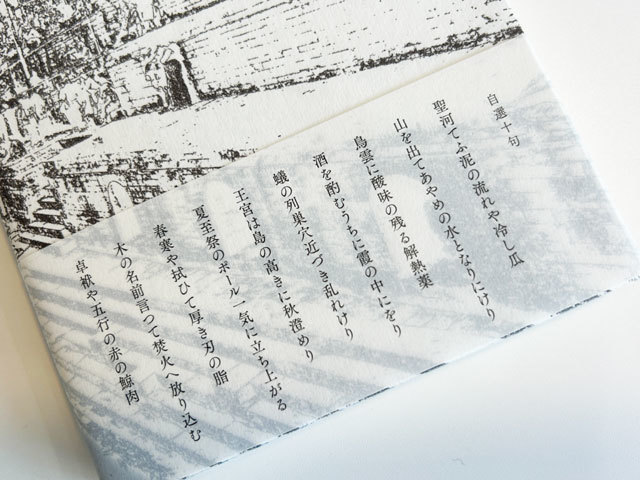 自選十句
聖河てふ泥の流れや冷し瓜
山を出てあやめの水となりにけり
鳥雲に酸味の残る解熱薬
酒を酌むうちに霞の中にをり
蟻の列巣穴近づき乱れけり
王宮は島の高きに秋澄めり
夏至祭のポール一気に立ち上がる
春寒や拭ひて厚き刃の脂
木の名前言つて焚火へ放り込む
卓袱や五行の赤の鯨肉